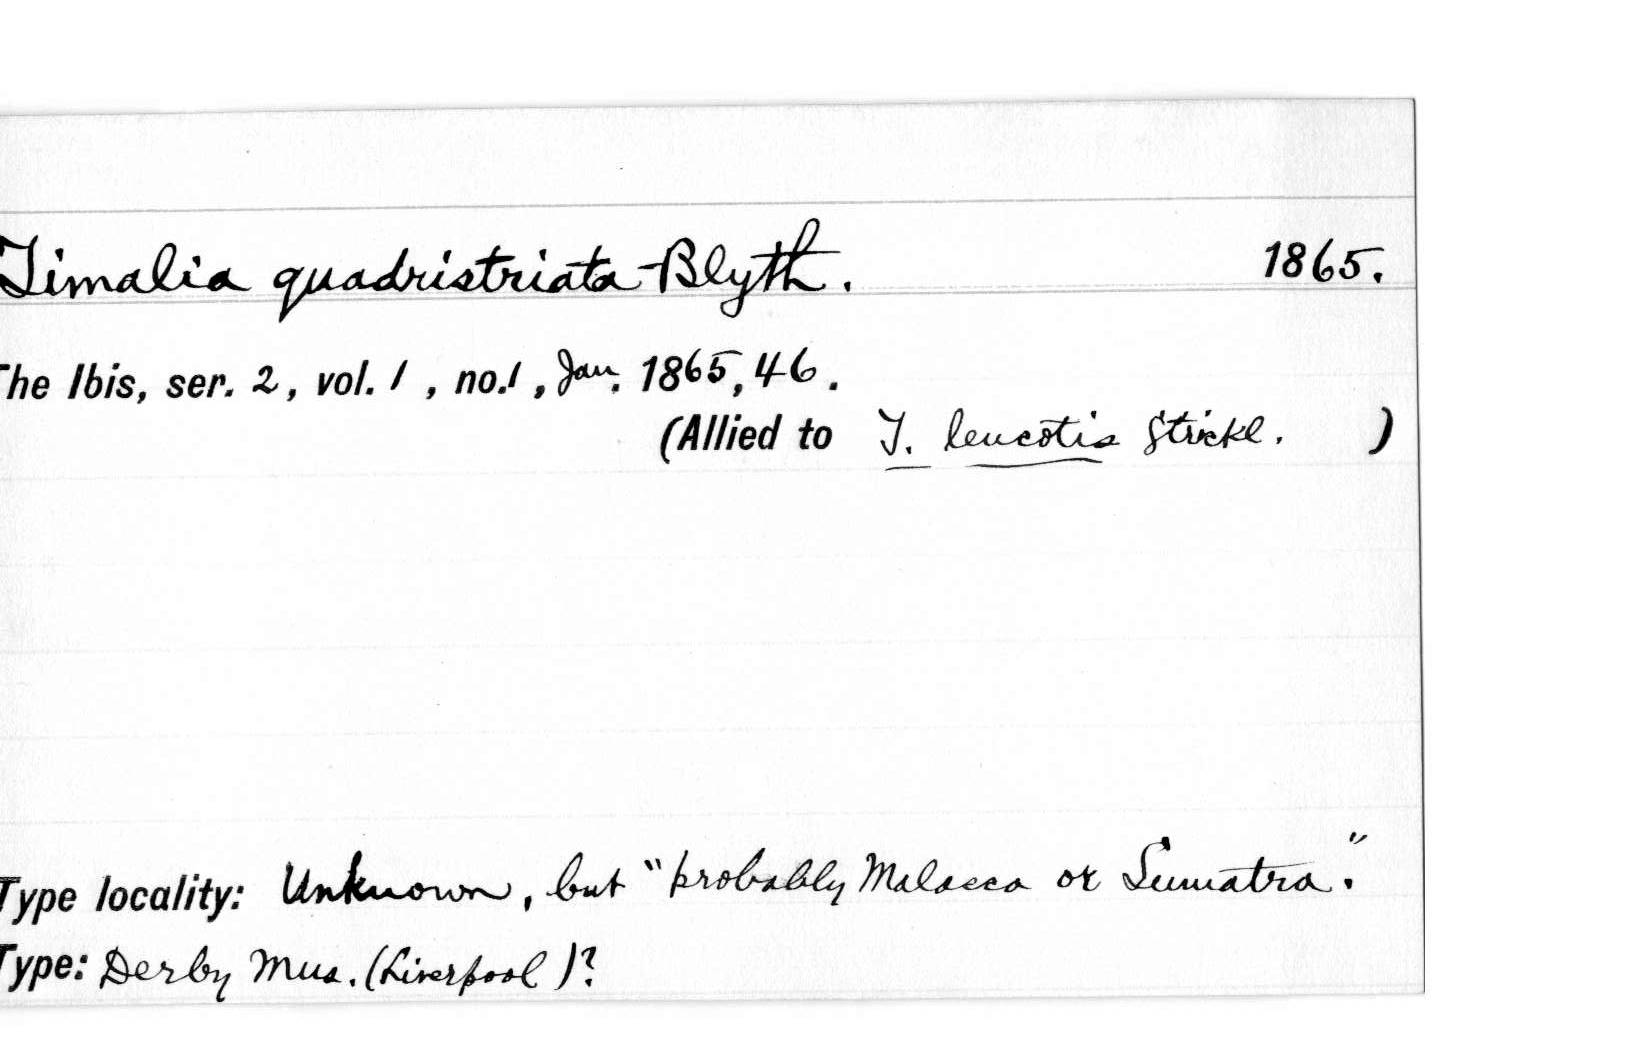 Timalia quadristriata Blyth. 1865.
The Ibis, ser. 2, vol. 1, no.1, Jan. 1865, 46.
(Allied to T. leucotis Strickl. )
Type locality: Unknown, but "probably Malacca or Sumatra."
Type: Derby Mus. (Liverpool)?